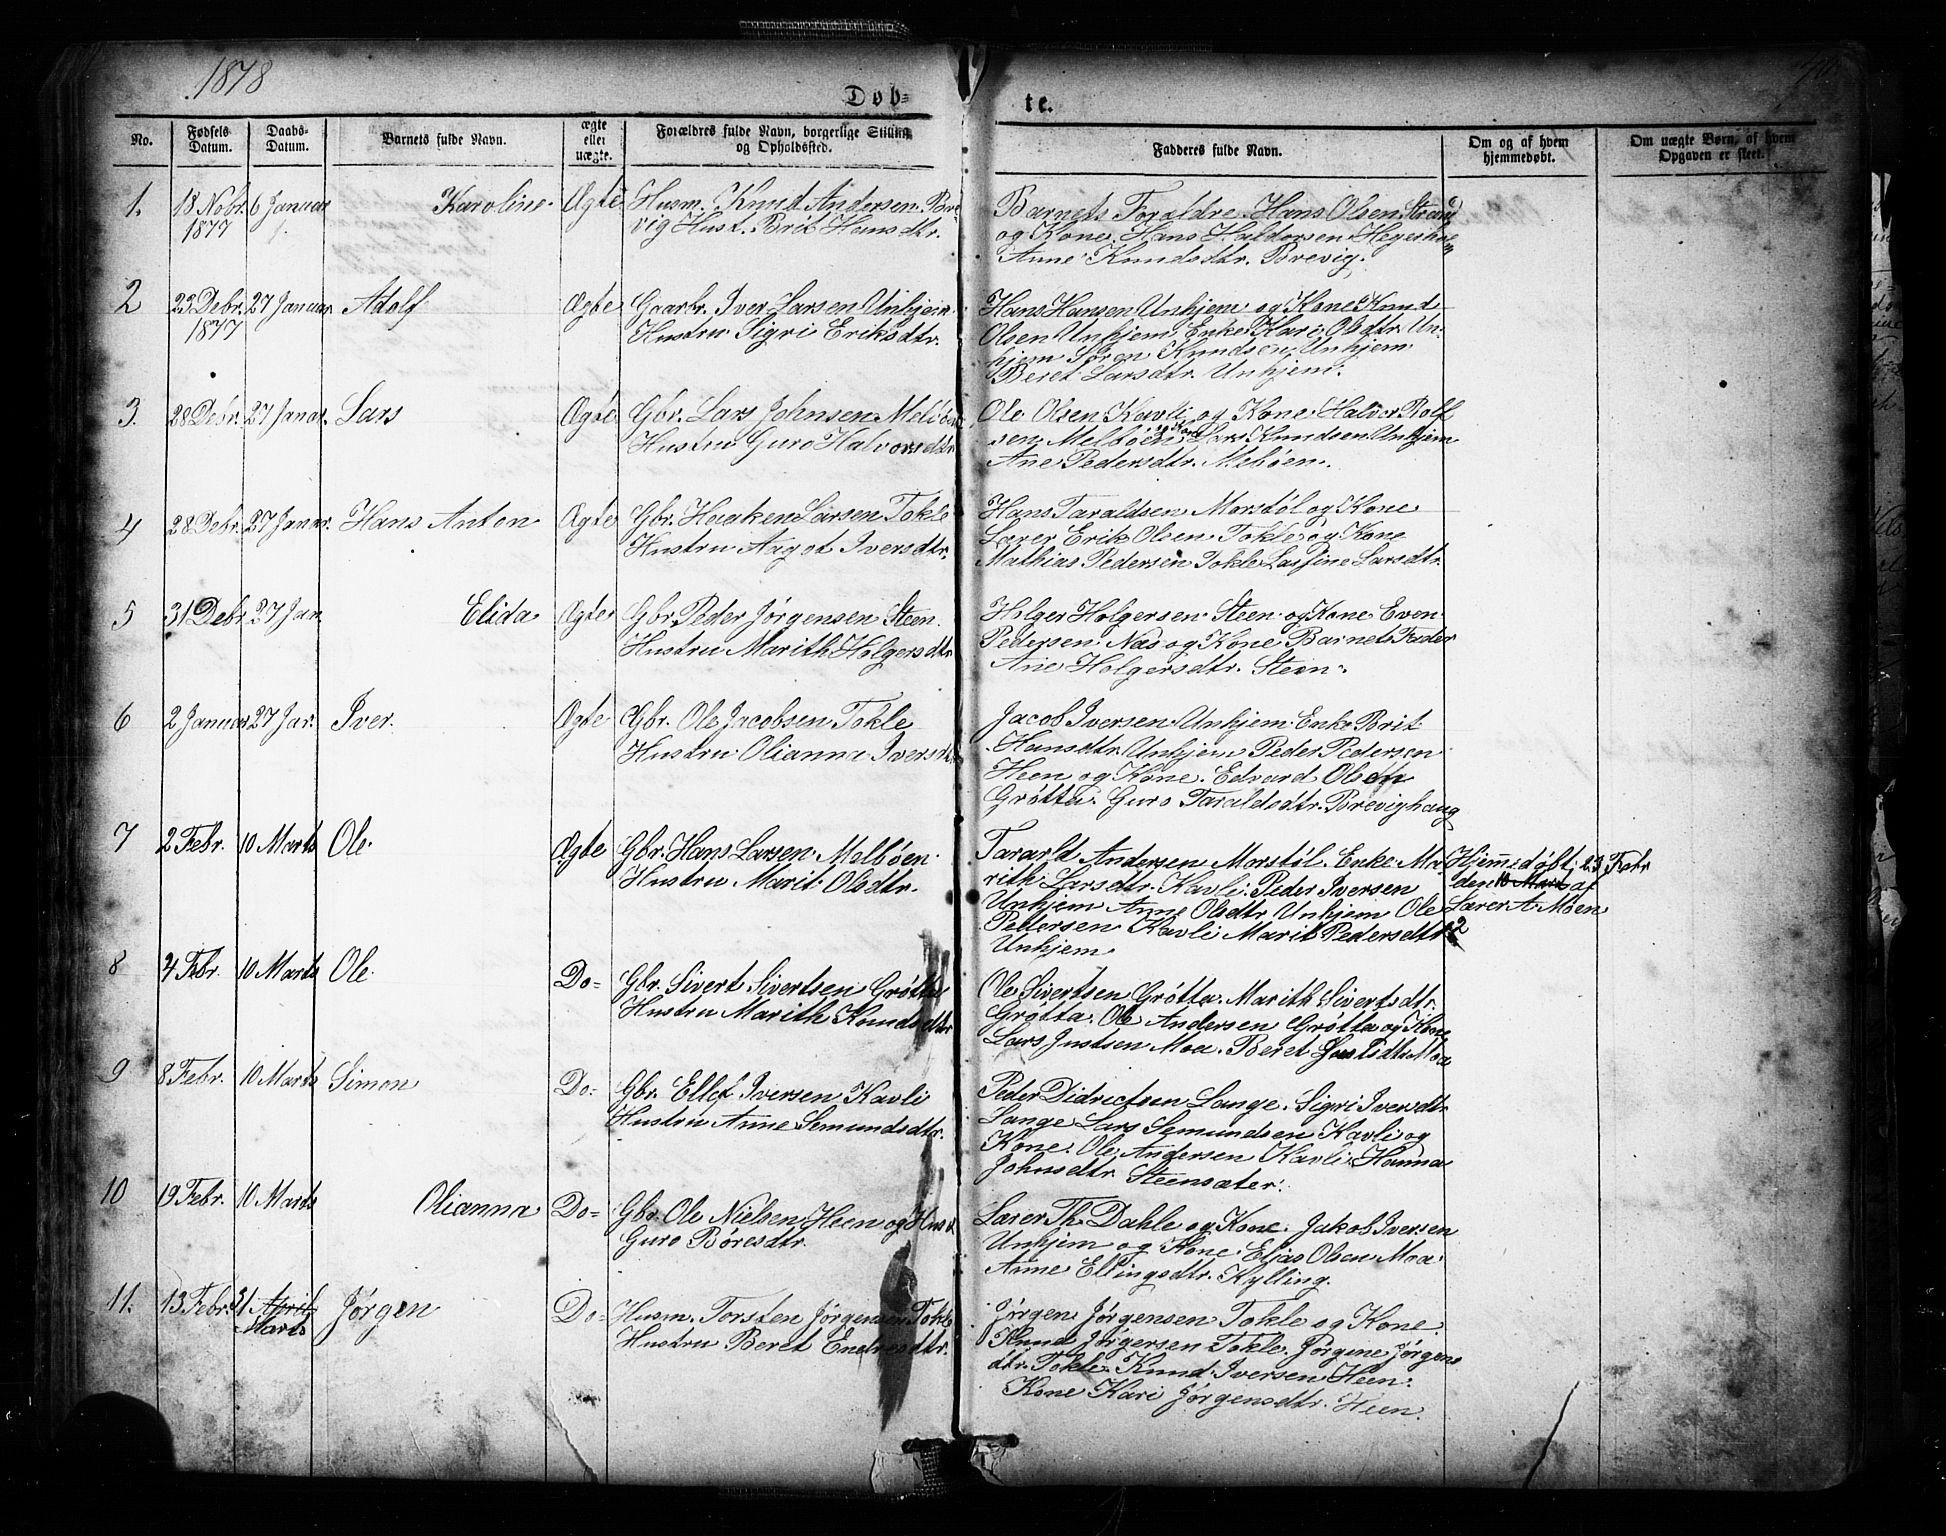 1878
Døb=
te.
No.
Fødsels Datum.
Daabs- Datum.
Barnets fulde Navn.
ægte eller uægte.
Forældres fulde Navn, borgerlige Stilling og Opholdssted.
Fadderes fulde Navn.
Om og af hvem hjemmedøbt.
Om uægte Børn, af hvem Opgaven er skeet.
1. 18 Nobr. 6 Januar Karoline Ægte Husm. Knud Andersen Bre-
1877 vig Hust. Brit Hansdtr.
Barnets Forældre. Hans Olsen Strand
og Kone. Hans Haldorsen Hegerholm
Anne Knudsdtr. Brevig.
2 23 Debr. 27 Januar Adolf Ægte Gaarbr. Iver Larsen Unhjem
1877 Hustru Sigri Eriksdtr.
Hans Hansen Unhjem og Kone Knud
Olsen Unhjem, Enke Kari Olsdtr. Un-
hjem Søren Knudsen Unhjem
Beret Larsdtr. Unhjem.
3. 28 Debr. 27 Januar. Lars Ægte Gbr. Lars Johnsen Melbøen
Hustru Guro Halvorsdtr
Ole Olsen Kavli og Kone. Halvor Rolf
sen Melbøen og Kone Lars Knudsen Unhjem
Ane Pedersdtr. Mebøen.
4 28 Debr. 27 Januar. Hans Anton Ægte Gbr. Haaken Larsen Tokle
Hustru Aagot Iversdtr.
Hans Taraldsen Morstøl og Kone
Lærer Erik Olsen Tokle og Kone
Mathias Pedersen Tokle Larsdtr.
5 31 Debr. 27 Jan Elida Ægte Gbr. Peder Jørgensen Steen.
Hustru Marith Holgersdtr
Holger Holgersen Steen og Kone Even
Pedersen Næs og Kone Barnets Fader
Ane Holgersdtr. Steen.
6 2 Januar 27 Jar. Iver. Ægte Gbr. Ole Jacobsen Tokle
Hustru Olianna Iversd
Jacob Iversen Unhjem. Enke Brit
Hansdtr. Unhjem Peder Pedersen
Heen og Kone. Edvard Olsen
Grøtta. Guro Taraldsdtr. Brevighaug
7 2 Febr. 10 Marts Ole Ægte Gbr. Hans Larsen Melbøen
Hustru Marit Olsdtr.
Tarald Andersen Morstøl. Enke Ma
rith Larsdtr. Kavli. Peder Iversen
Unhjem Anne Olsdtr Unhjem Ole
Pettersen Kavli Marit Pedersdtr
Unhjem
Hjemmedøbt 23 Febr
den 10 Mart af
Lærer A. Moen
8 4 Febr. 10 Marts Ole Do= Gbr. Sivert Sivertsen Grøtta
Hustru Marith Knudsdtr
Ole Sivertsen Grøtta. Marith Sivertsdtr.
Grøtta. Ole Andersen Grøtta og Kone
Lars Justsen Moa. Beret Justsdtr. Moa
9 8 Febr. 10 Marts Simon Do= Gbr. Ellef Iversen Kavli
Hustru Anne Semundsdtr.
Peder Didrictsen Lange. Sigri Iversdtr
Lange Lars Semundsen Kavli og
Kone. Ole Andersen Kavli Hanna
Johnsdtr. Steensæter.
10 19 Febr. 10 Marts Olianna Do= Gbr. Ole Nielsen Heen og Hust
Guro Boresdtr.
Lærer Th. Dahle og Kone. Jakob Iversen
Unhjem og Kone. Eljas Olsen Moa
Anne Ellingsdtr. Kylling.
11. 13 Febr. 31 April Jørgen Do= Husm. Torsten Jørgensen Tokle
Marts Hustru Beret Endresdtr.
Jørgen Jørgensen Tokle og Kone.
Knud Jørgersen Tokle. Jørgine Jørgens
dtr. Tokle. Knud Iversen Heen.
Kone Kari Jørgensdtr. Heen.